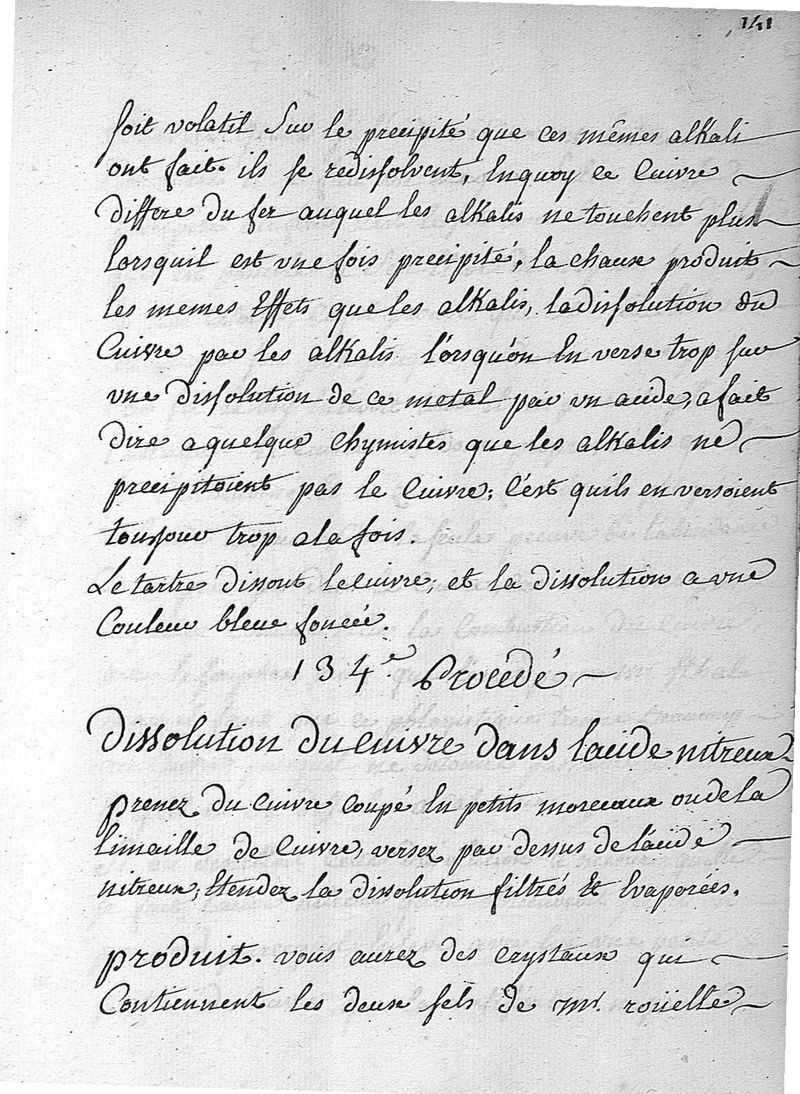 141
soit volatil sur le precipité que ces mêmes alkali
ont fait. ils se redissolvent, Enquoy ce Cuivre
differe du fer auquel les alkalis ne touchent plus
lorsquil est vne fois precipité, la chaux produit
les memes Effets que les alkalis, la dissolution du
Cuivre par les alkalis lórsqu'on En verse trop sur
vne dissolution de ce metal par vn acide, a fait
dire a quelque chymistes que les alkalis ne
precipitoient pas le Cuivre; C'est quils en versoient
toujour trop a la fois.
Le tartre dissout le cuivre, et la dissolution a vne
Couleur bleue foncée.
134.e Procédé
Dissolution du Cuivre dans lacide nitreux
prenez du Cuivre coupé En petits morceaux ou de la
limaille de Cuivre, versez par dessus de l'acide
nitreux; Etendez la dissolution filtrés Et Evaporées.
produit. vous aurez des crystaux qui
Contiennent les deux sels de mr. roüelle